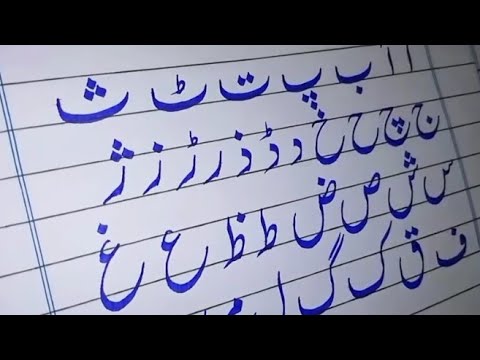 ا آ ب پ ت ٹ ث
ج چ ح خ د ڈ ذ ر ڑ ز ژ
س ش ص ض ط ظ ع غ
ف ق ک گ ل م